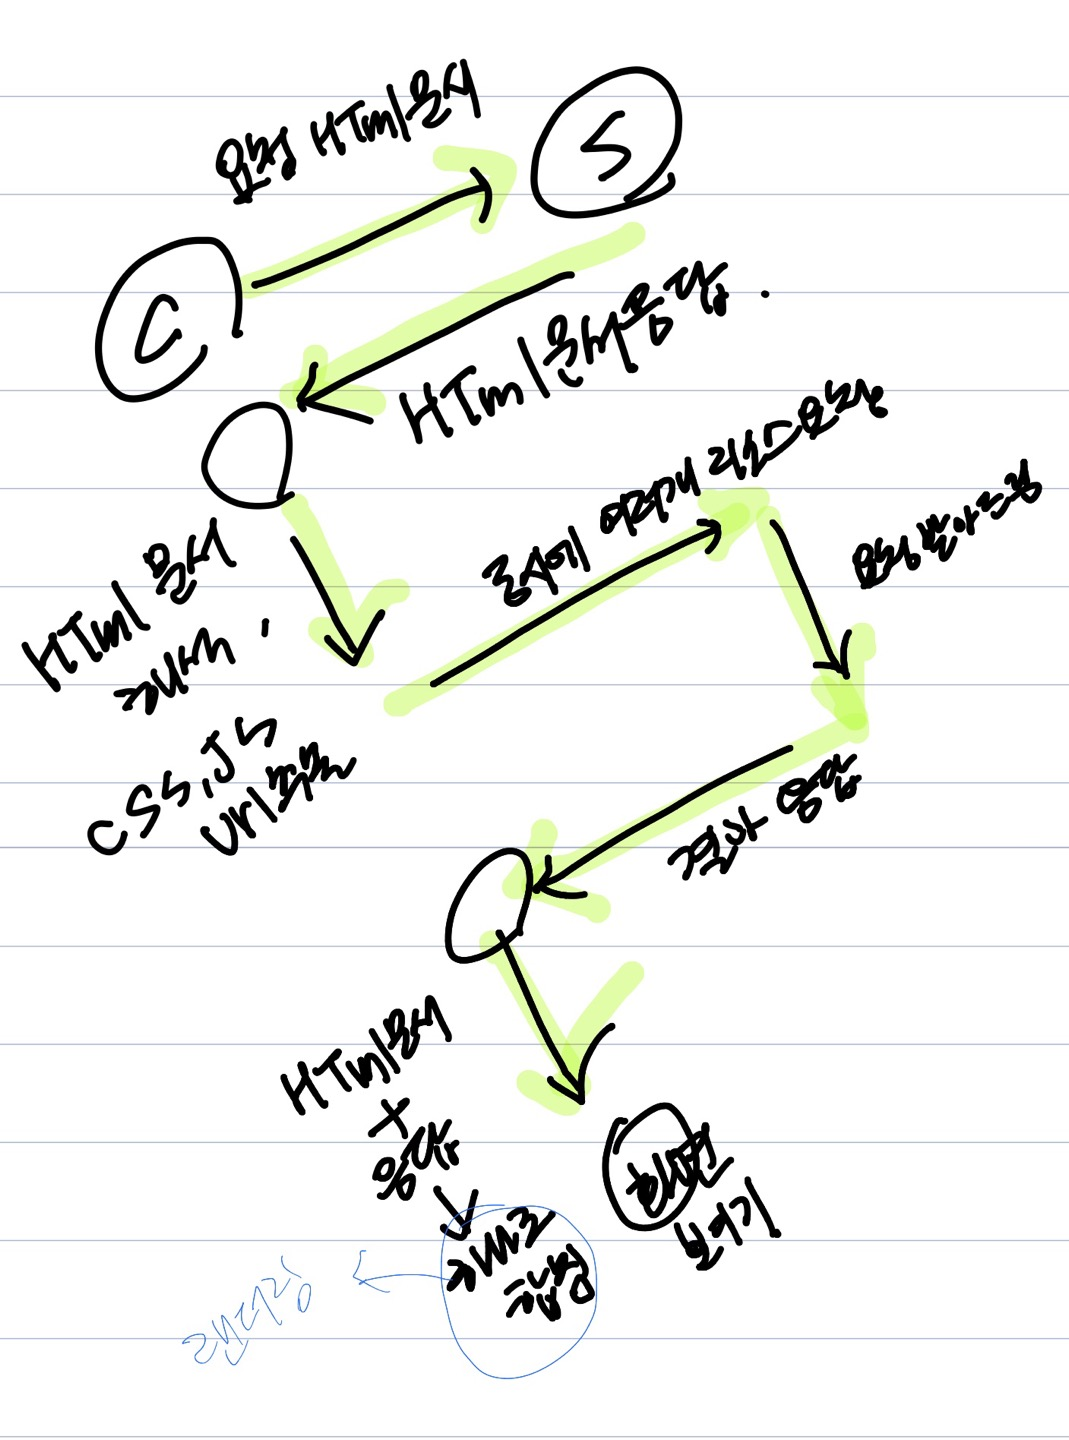 요청 HTml문서
S
C
HTml문서응답.
동시에 여러개 리소스요청
요청 받아드림
HTml 문서
해석.
CSS, JS
Url 추출
결과 응답
HTml문서
+
응답
↓
재조합
화면
보이기
랜더링